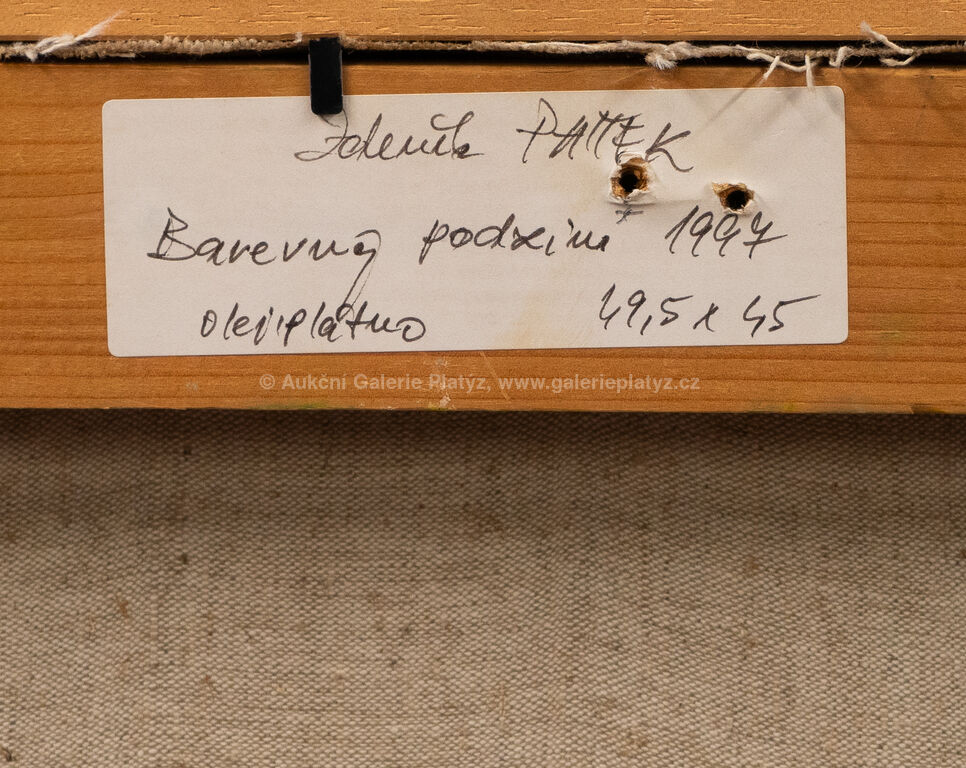 Zdeněk PATEK
Barevný podzim 1997
olej, plátno 49,5 x 45
© Aukční Galerie Platýz, www.galerieplatyz.cz